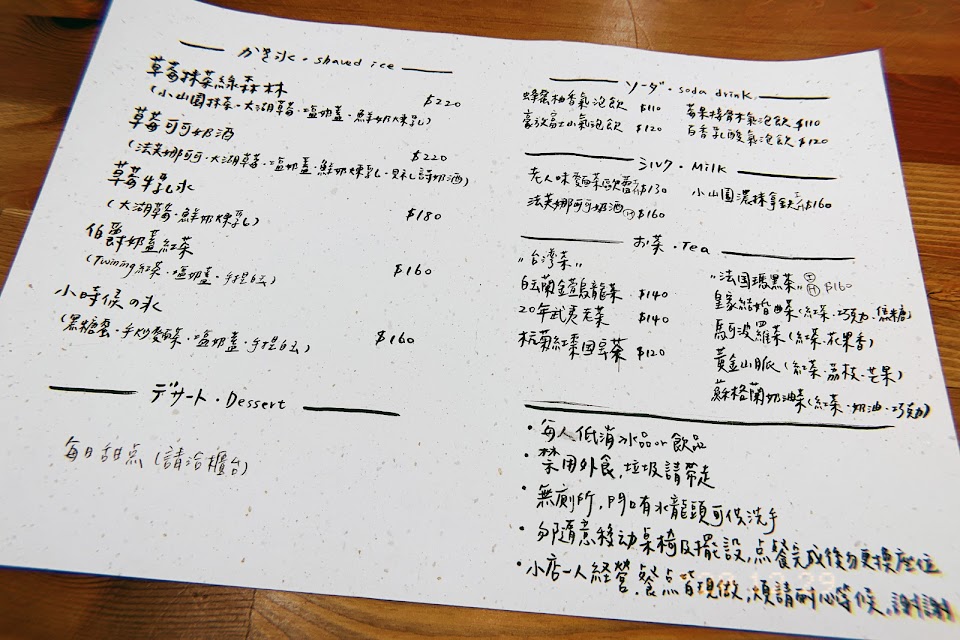 かき氷・shaved ice
草莓抹茶綠森林 $220
(小山園抹茶・大湖草莓・塩奶蓋・鮮奶煉乳)
草莓可可奶酒 $220
(法芙娜可可・大湖草莓・塩奶蓋・鮮奶煉乳・貝禮詩奶酒)
草莓牛乳氷 $180
(大湖草莓・鮮奶煉乳)
伯爵奶蓋紅茶 $160
(Twining紅茶・塩奶蓋・手搓白玉)
小時候の氷 $160
(黑糖蜜・手炒麵茶・塩奶蓋・手搓白玉)
デザート・Dessert
每日甜点 (請洽櫃台)
ソーダ・soda drink
蜂蜜柚香氣泡飲 $110
豪放富士山氣泡飲 $120
蘋果接骨木氣泡飲 $110
百香乳酸氣泡飲 $120
ミルク・Milk
老人味麵茶歐蕾 $130
法芙娜可可奶酒 Ⓗ $160
小山園濃抹拿鉄 $160
お茶・Tea
"台湾茶"
白玉蘭金萱烏龍茶 $140
20年武夷老茶 $140
杭菊紅棗国宝茶 $120
"法国瑪黑茶" $160
皇家結婚曲茶(紅茶・巧克力・焦糖)
馬可波羅茶(紅茶・花果香)
黃金山脈(紅茶・荔枝・芒果)
蘇格蘭奶油茶(紅茶・奶油・巧克力)
・每人低消氷品or飲品
・禁用外食,垃圾請帶走
・無廁所,門口有水龍頭可供洗手
・勿隨意移动桌椅及擺設,点餐完成後勿更換座位
・小店一人經營,餐点皆現做,煩請耐心等候,謝謝